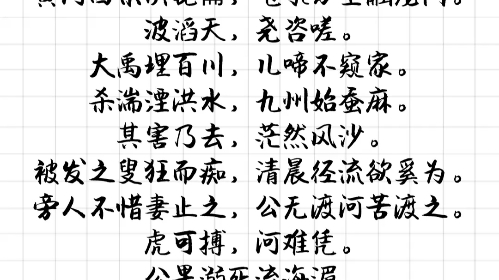 波滔天，尧咨嗟。
大禹理百川，儿啼不窥家。
杀湍湮洪水，九州始蚕麻。
其害乃去，茫然风沙。
被发之叟狂而痴，清晨径流欲奚为。
旁人不惜妻止之，公无渡河苦渡之。
虎可搏，河难凭。
公果溺死流海湄